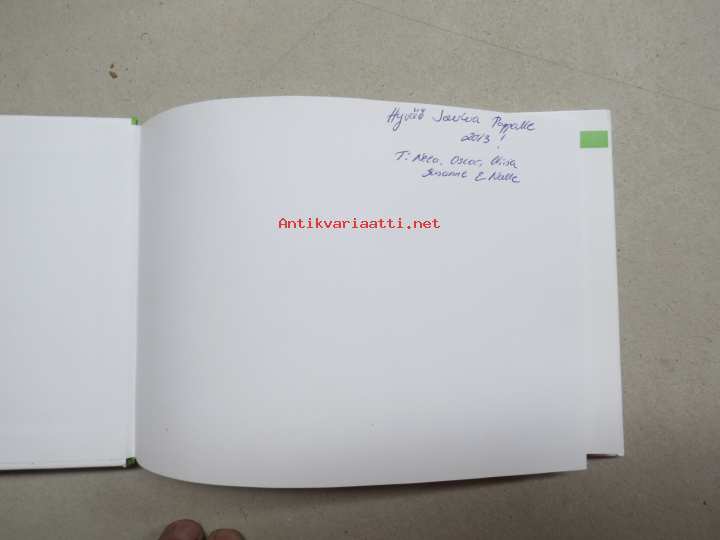 Hyvää Joulua Papalle
2013!
T: Neea, Oscar, Eliisa
Susanne & Nalle
Antikvariaatti.net